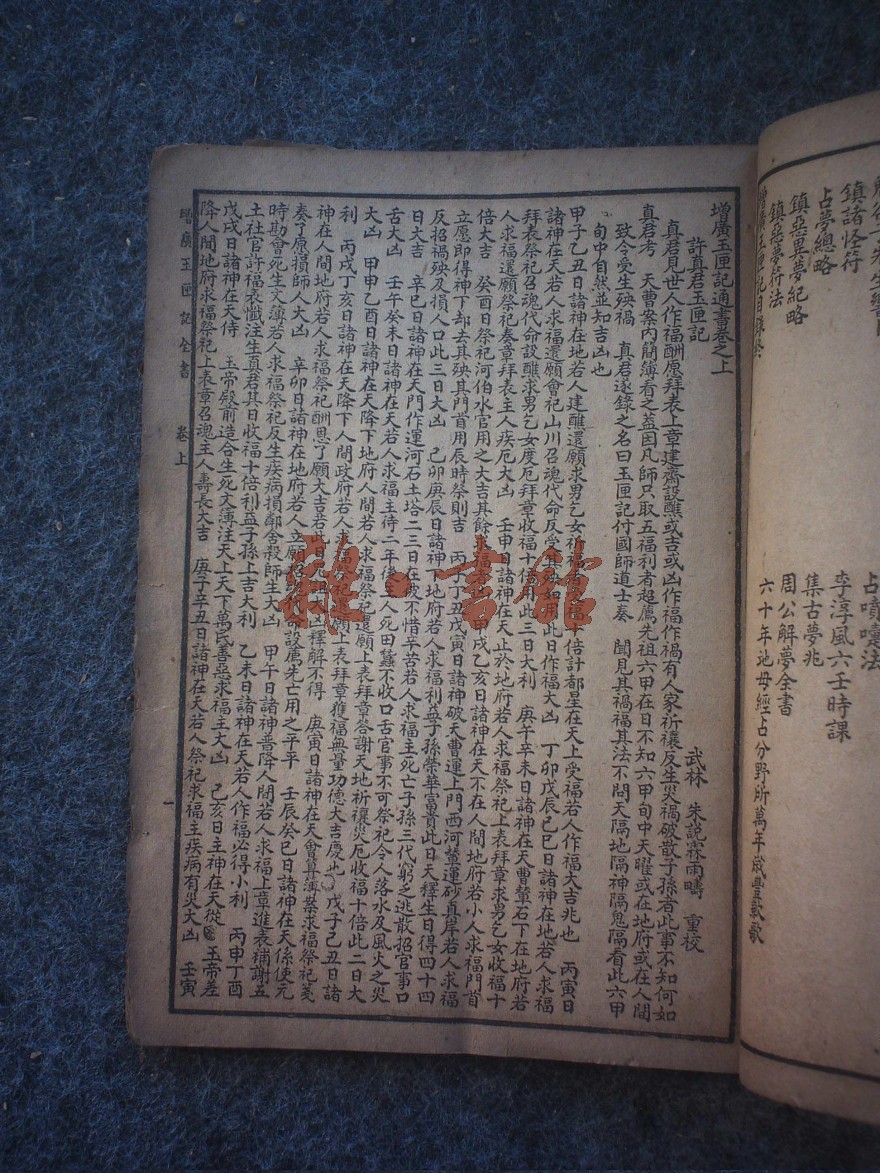 解諸怪符
占夢總略
鎮惡異夢紀略
鎮惡夢符法
增廣玉匣記目錄終
占噴嚏法
李淳風六壬時課
集古夢兆
周公解夢全書
六十年地母經占分野所萬年歲豐歉歌
增廣玉匣記通書卷之上
武林 朱說霖雨疇 重校
許真君玉匣記
真君見世人作福酬愿拜表上章建齋設醮或吉或凶作福作禍有人家祈禳反生災禍破散子孫者此事不知何如
真君考 天曹案內簡簿看之蓋因凡師只取五福利者超薦先祖六甲在日不知六甲旬中天曜或在地府或在人間
致令受生殃禍 真君遂錄之名曰玉匣記付國師道士奏 聞見其禍福其法不問天隔地隔神隔鬼隔看此六甲
旬中自然並知吉凶也
甲子乙丑日諸神在地若人建醮還願求男乞女祈福者見福十倍計都星在天上受福若人作福大吉兆也 丙寅日
諸神在天若人求福還願會祀山川召魂代命反受其殃如用此日作福大凶 丁卯戊辰己巳日諸神在地若人求福
拜表祭祀召魂代命設醮求男乞女度厄拜章收福十倍用此三日大利 庚午辛未日諸神在天曹輦石下在地府若
人求福還願祭祀奏章拜表主人疾厄大凶 壬申日諸神在天止於地府若人求福祭祀上表拜章求男乞女收福十
倍大吉 癸酉日祭祀河伯水官用之大吉其餘求福者凶 甲戌乙亥日諸神在天不在人間地府若小人求福門首
立愿即得神下却去其殃其門首用辰時祭則吉 丙子丁丑戊寅日諸神破天曹運上門西河輦運砂真岸若人求福
反招禍殃及損人口此三日大凶 己卯庚辰日諸神下地府若人求福利益子孫榮華富貴此日天釋生日得四十四
日大吉 辛巳日諸神在天門作運河石土塔二三日在彼不惜辛苦若人求福主死亡子孫三代窮乏逃散招官事口
舌大凶 壬午癸未日諸神在天若人求福主待二年後人死田蠶不收口舌官事不可祭祀令人落水及風火之災
大凶 甲申乙酉日諸神在天降下地府人間若人求福祭祀還願上表拜章答謝天地祈禳災厄收福十倍此二日大
利 丙戌丁亥日諸神在天降下人間政府若人求福祭祀還願上表拜章獲福無量功德大吉慶也 戊子己丑日諸
神在人間地府若人求福祭祀酬恩了願大吉若此日見凶大凶釋解不得 庚寅日諸神在天會算薄業求福祭祀戔
奏了原損師人大凶 辛卯日諸神在地府若人立願招魂代命設薦先亡用之平平 壬辰癸巳日諸神在天係使元
時勘會死生文簿若人求福祭祀反生疾病損鄰舍殺師生大凶 甲午日諸神普降人間若人求福上章進表補謝五
土社官許福表懺注生真君其日收福十倍利益子孫上吉大利 乙未日諸神在天若人作福必得小利 丙申丁酉
戊戌日諸神在天侍 玉帝殿前造合生死文薄注天上天下萬民善惡求福主大凶 己亥日主神在天從 玉帝差
降人間地府求福祭祀上表章召魂主人壽長大吉 庚子辛丑日諸神在天若人祭祀求福主疾病有災大凶 壬寅
增廣玉匣記全書 卷上 一